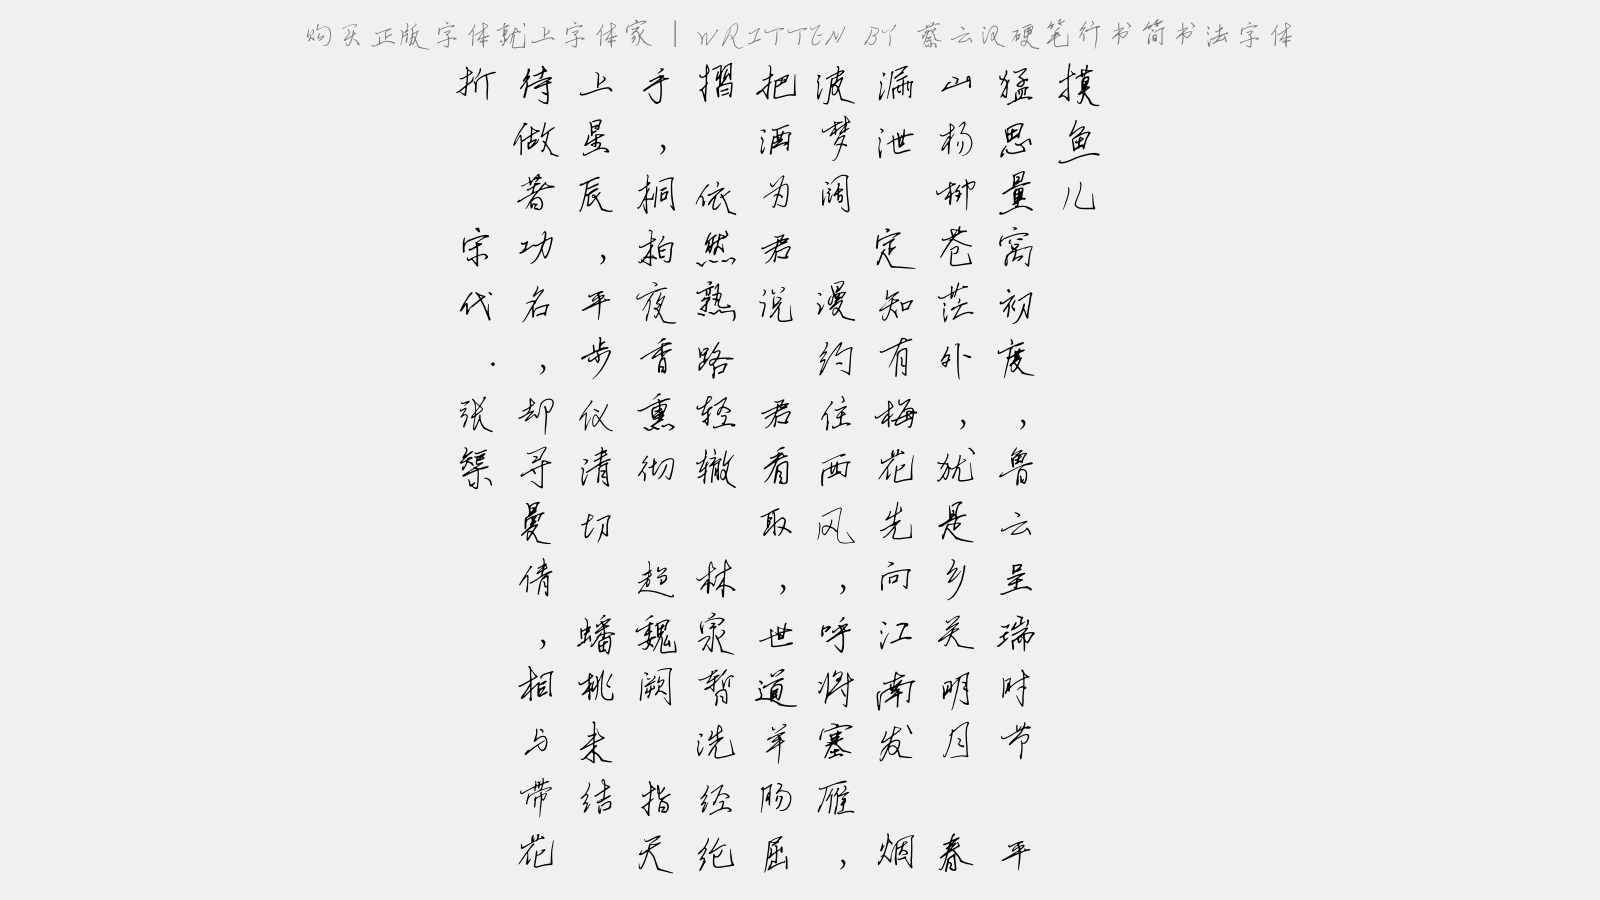 购买正版字体就上字体家 | WRITTEN BY 蔡云汉硬笔行书简书法字体
摸鱼儿
猛思量窝初度，鲁云呈瑞时节 平
山杨柳苍茫外，犹是乡关明月 春
漏泄 定知有梅花先向江南发 烟
波梦阔 漫约住西风，呼将塞雁，
把酒为君说 君看取，世道羊肠屈
摺 依然熟路轻辙 林泉暂洗经纶
手，桐柏夜香熏彻 趋魏阙 指天
上星辰，平步仪清切 蟠桃未结
待做著功名，却寻曼倩，相与带花
折
宋代·张榘